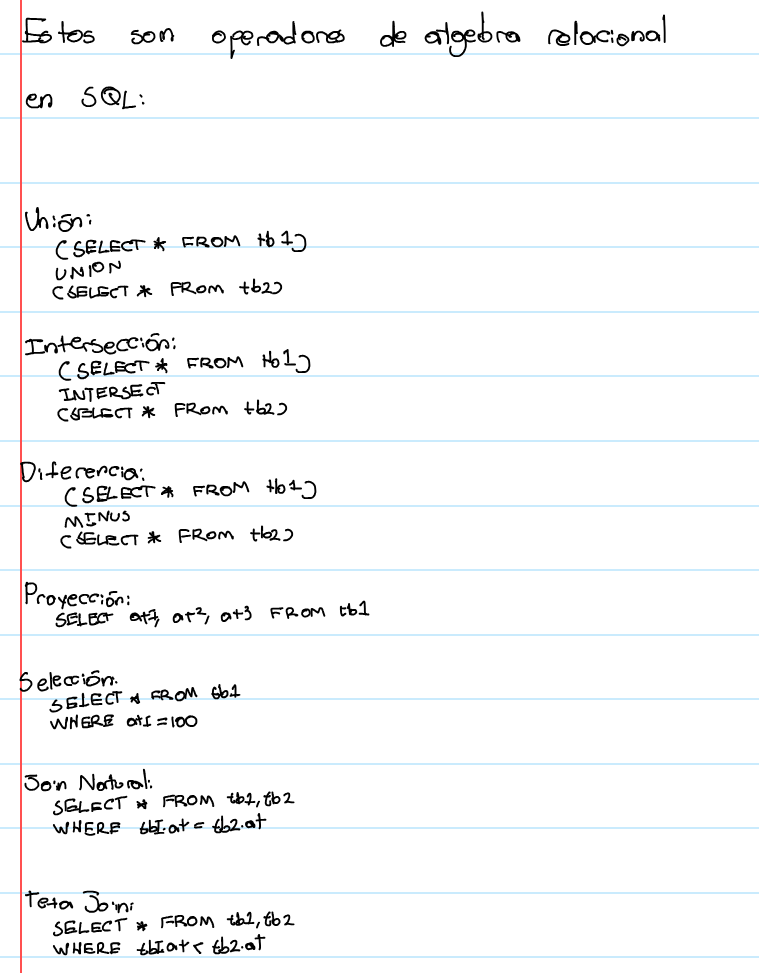 Estos son operadores de algebra relacional
en SQL:
Unión:
(SELECT * FROM tb1)
UNION
(SELECT * FROM tb2)
Intersección:
(SELECT * FROM tb1)
INTERSECT
(SELECT * FROM tb2)
Diferencia:
(SELECT * FROM tb1)
MINUS
(SELECT * FROM tb2)
Proyección:
SELECT at1, at2, at3 FROM tb1
Selección:
SELECT * FROM tb1
WHERE at1 = 100
Join Natural:
SELECT * FROM tb1, tb2
WHERE tb1.at = tb2.at
Teta Join:
SELECT * FROM tb1, tb2
WHERE tb1.at < tb2.at